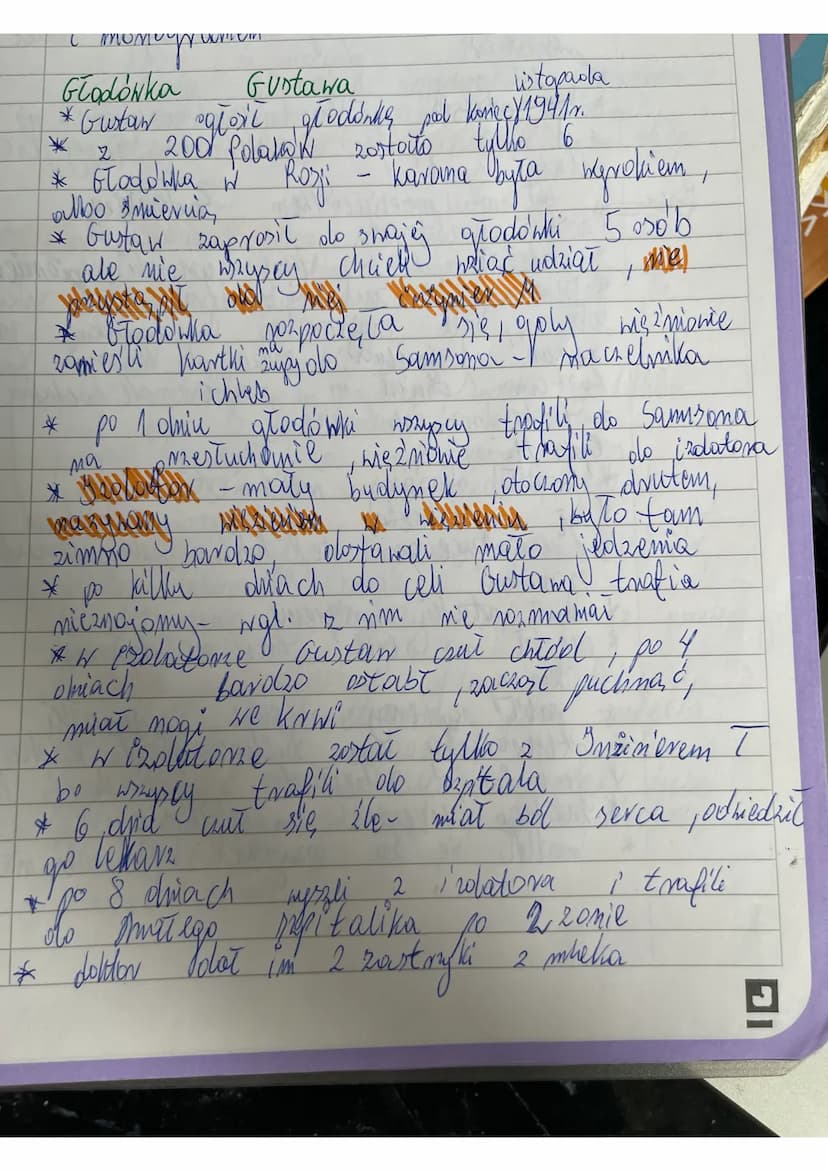 i monogramem
Głodówka Gustawa listopada
* Gustaw ogłosił głodówkę pod koniec 1941r.
* z 200 Polaków zostało tylko 6
* Głodówka w Rosji - karana była wyrokiem,
albo śmiercią,
* Gustaw zaprosił do swojej głodówki 5 osób
ale nie wszyscy chcieli wziąć udział, nie
przystąpił do niej inżynier
* Głodówka rozpoczęła się, gdy więźniowie
zanieśli kartki na zupy do Samsona - naczelnika
i chleb
* po 1 dniu głodówki wszyscy trafili do Samsona
na przesłuchanie, więźniowie trafili do izolatora
* Izolator - mały budynek, otoczony drutem,
nazywany więzieniem w więzieniu, było tam
zimno bardzo, dostawali mało jedzenia
* po kilku dniach do celi Gustawa trafia
nieznajomy - wgl. z nim nie rozmawiał
* w izolatorze Gustaw czuł chłód, po 4
dniach bardzo osłabł, zaczął puchnąć,
miał nogi we krwi
* w izolatorze został tylko z Inżinierem T
bo wszyscy trafili do szpitala
* 6 dnia czuł się źle - miał ból serca, odwiedził
go lekarz
* po 8 dniach wyszli z izolatora i trafili
do małego szpitalika po 2 zonie
* doktor dał im 2 zastrzyki z mleka